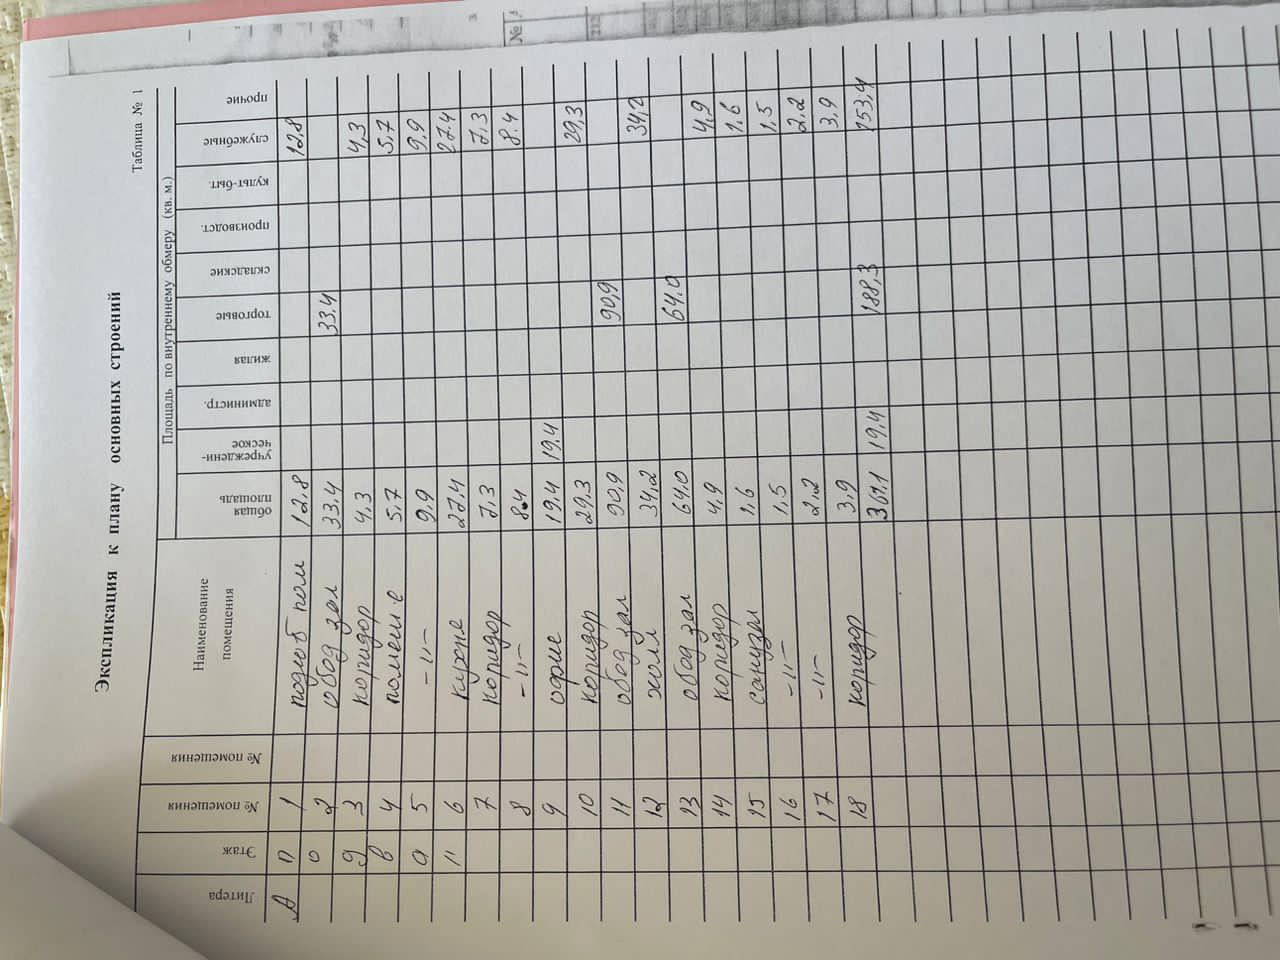 Экспликация к плану основных строений
Таблица № 1
Литера Этаж № помещения № помещения Наименование помещения Площадь по внутреннему обмеру (кв. м.)
общая площаль учреждени-ческое администр. жилая торговые складские производст. культ-быт. служебные прочие
А п 1 подсоб пом 12,8 12,8
о 2 обед зал 33.4 33.4
д 3 коридор 4,3 4,3
в 4 помещ-е 5.7 5.7
а 5 -"- 9,9 9,9
" 6 кухне 27,4 27.4
7 коридор 7,3 7,3
8 -"- 8.4 8.4
9 офис 19.4 19.4
10 коридор 29,3 29,3
11 обед зал 90,9 90,9
12 холл 34,2 34,2
13 обед зал 64.0 64.0
14 коридор 4,9 4,9
15 санузел 1,6 1,6
16 -"- 1,5 1,5
17 -"- 2,2 2,2
18 коридор 3,9 3,9
361.1 19,4 188,3 153,4
№